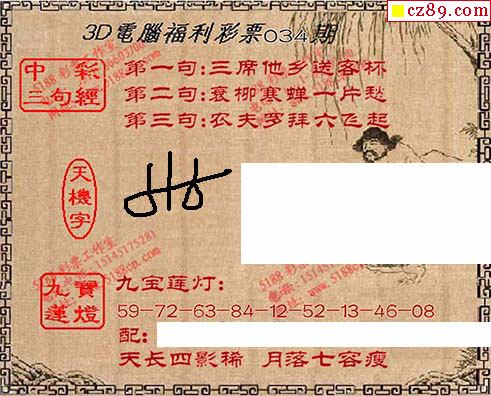 cz89.com
3D電腦福利彩票034期
中彩三句經
第一句:三席他乡送客杯
第二句:哀柳寒蝉一片愁
第三句:农夫岁拜六飞起
天機字
九寶蓮燈
九宝莲灯:
59-72-63-84-12-52-13-46-08
配:
天长四影稀 月落七容瘦
5188 彩票工作室
15145175281